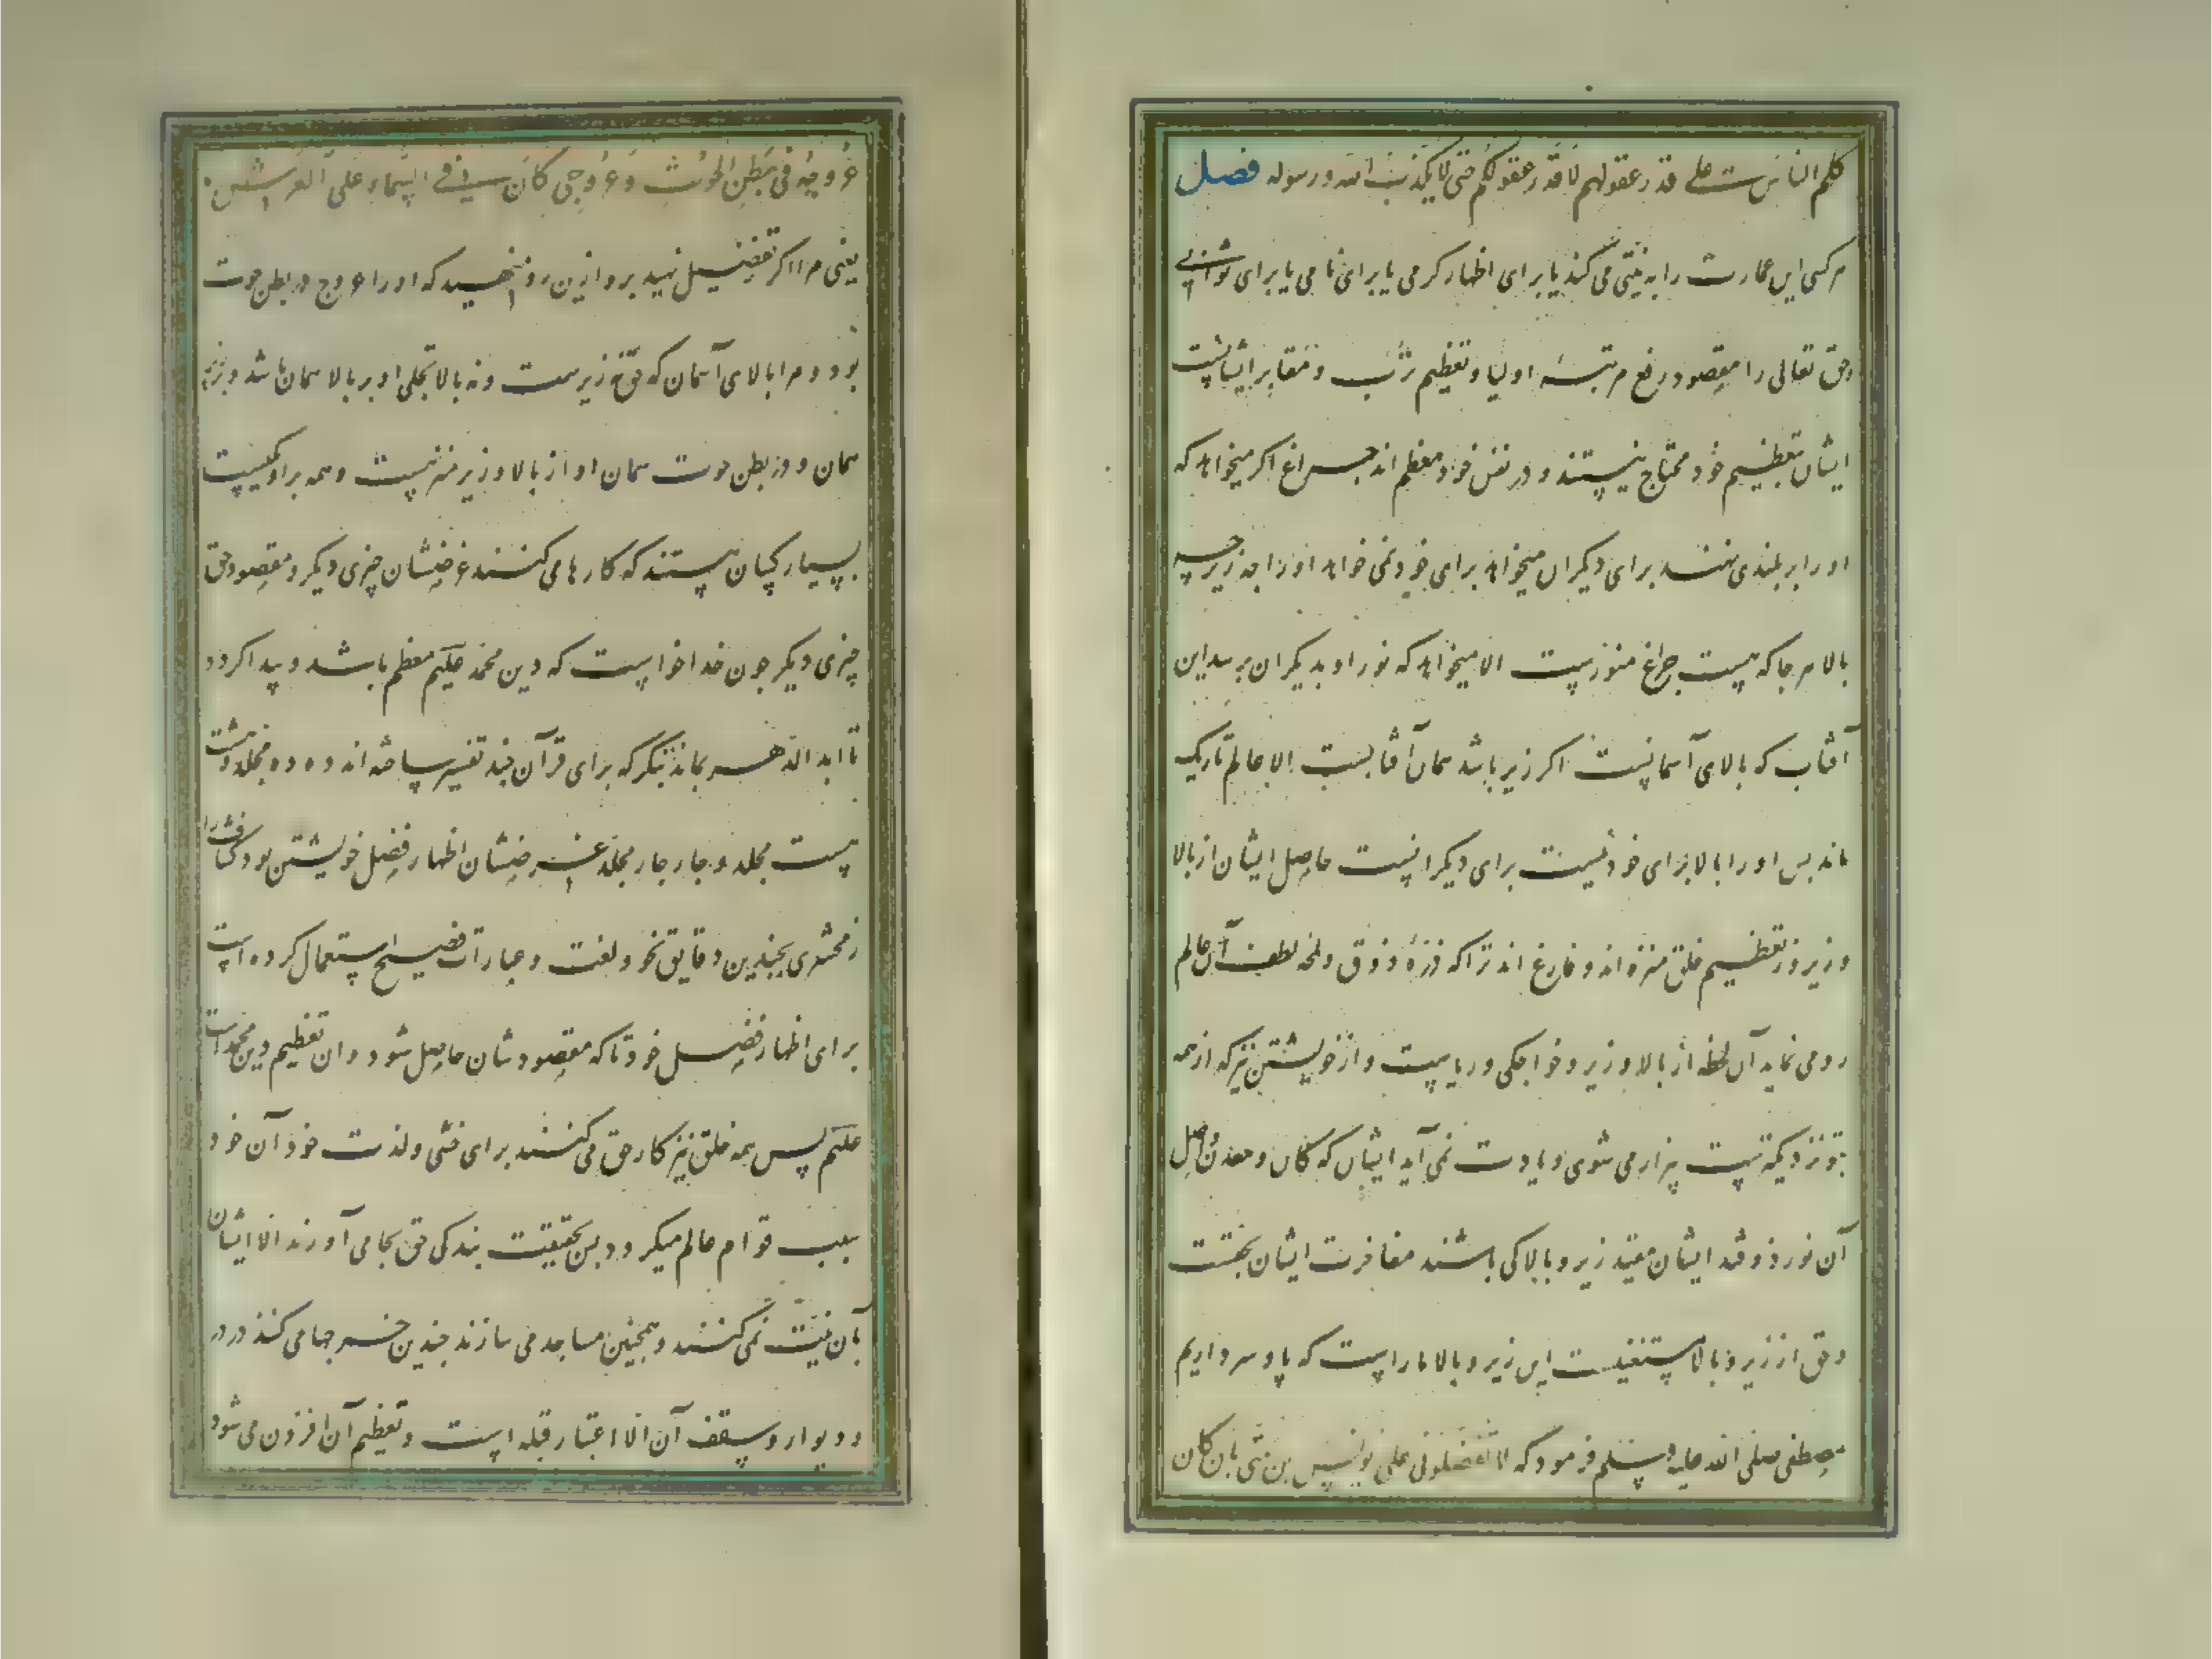 کلم الناس علی قدر عقولهم لا قدر عقولکم حتی لا یکذب الله و رسوله فصل
هر کسی این عمارت را به نیتی می کند یا برای اظهار کرمی یا برای نامی یا برای ثوابی
و حق تعالی را مقصود رفع مرتبه اولیا و تعظیم ترب و مقابر ایشانست
ایشان بتعظیم خود محتاج نیستند و در نفس خود معظم اند چراغ اگر میخواهد که
او را بر بلندی نهند برای دیگران میخواهد برای خود نمی خواهد او را چه زیر چه
بالا هر جا که هست چراغ منورست الا میخواهد که نور او بدیگران برسد این
آفتاب که بالای آسمانست اگر زیر باشد همان آفتابست الا عالم تاریک
ماند پس او را بالا برای خود نیست برای دیگرانست حاصل ایشان از بالا
و زیر و تعظیم خلق منزه اند و فارغ اند ترا که ذره ذوق و لمحه لطف آن عالم
رو می نماید آن لحظه از بالا و زیر و خواجگی و ریاست و از خویشتن نیز که از همه
بتو نزدیکترست بیزار می شوی و یادت نمی آید ایشان که کان و معدن و اصل
آن نور و ذوقند ایشان مقید زیر و بالا کی باشند مفاخرت ایشان بحقست
و حق از زیر و بالا مستغنیست این زیر و بالا ما راست که پا و سر داریم
مصطفی صلی الله علیه و سلم فرمود که لا تفضلونی علی یونس بن متی بان کان
عروجه فی بطن الحوت و عروجی کان فی السماء علی العرش
یعنی مرا اگر تفضیل نهید برو ازین رو منهید که او را عروج در بطن حوت
بود و مرا بالای آسمان که حق نه زیرست و نه بالا تجلی او بر بالا همان باشد و بزیر
همان و در بطن حوت همان او از بالا و زیر منزهست و همه بر او یکیست
بسیار کسان هستند که کارها می کنند غرضشان چیزی دیگر و مقصود حق
چیزی دیگر چون خدا خواست که دین محمد صلعم معظم باشد و پیدا گردد
تا ابد الدهر بماند بنگر که برای قرآن چند تفسیر ساخته اند ده ده مجلد و هشت
هشت مجلد و چار چار مجلد غرضشان اظهار فضل خویشتن بود کشاف را
زمخشری بچندین دقایق نحو و لغت و عبارات فصیح استعمال کرده است
برای اظهار فضل خود تا که مقصودشان حاصل شود و آن تعظیم دین محمد است
صلعم پس همه خلق نیز کار حق می کنند برای خشی و لذت خود آن خود
سبب قوام عالم میگردد پس بحقیقت بندگی حق بجا می آورند الا ایشان
بآن نیت نمی کنند و همچنین مساجد می سازند چندین خرجها می کنند در در
و دیوار و سقف آن الا اعتبار قبله است و تعظیم آن افزون می شود